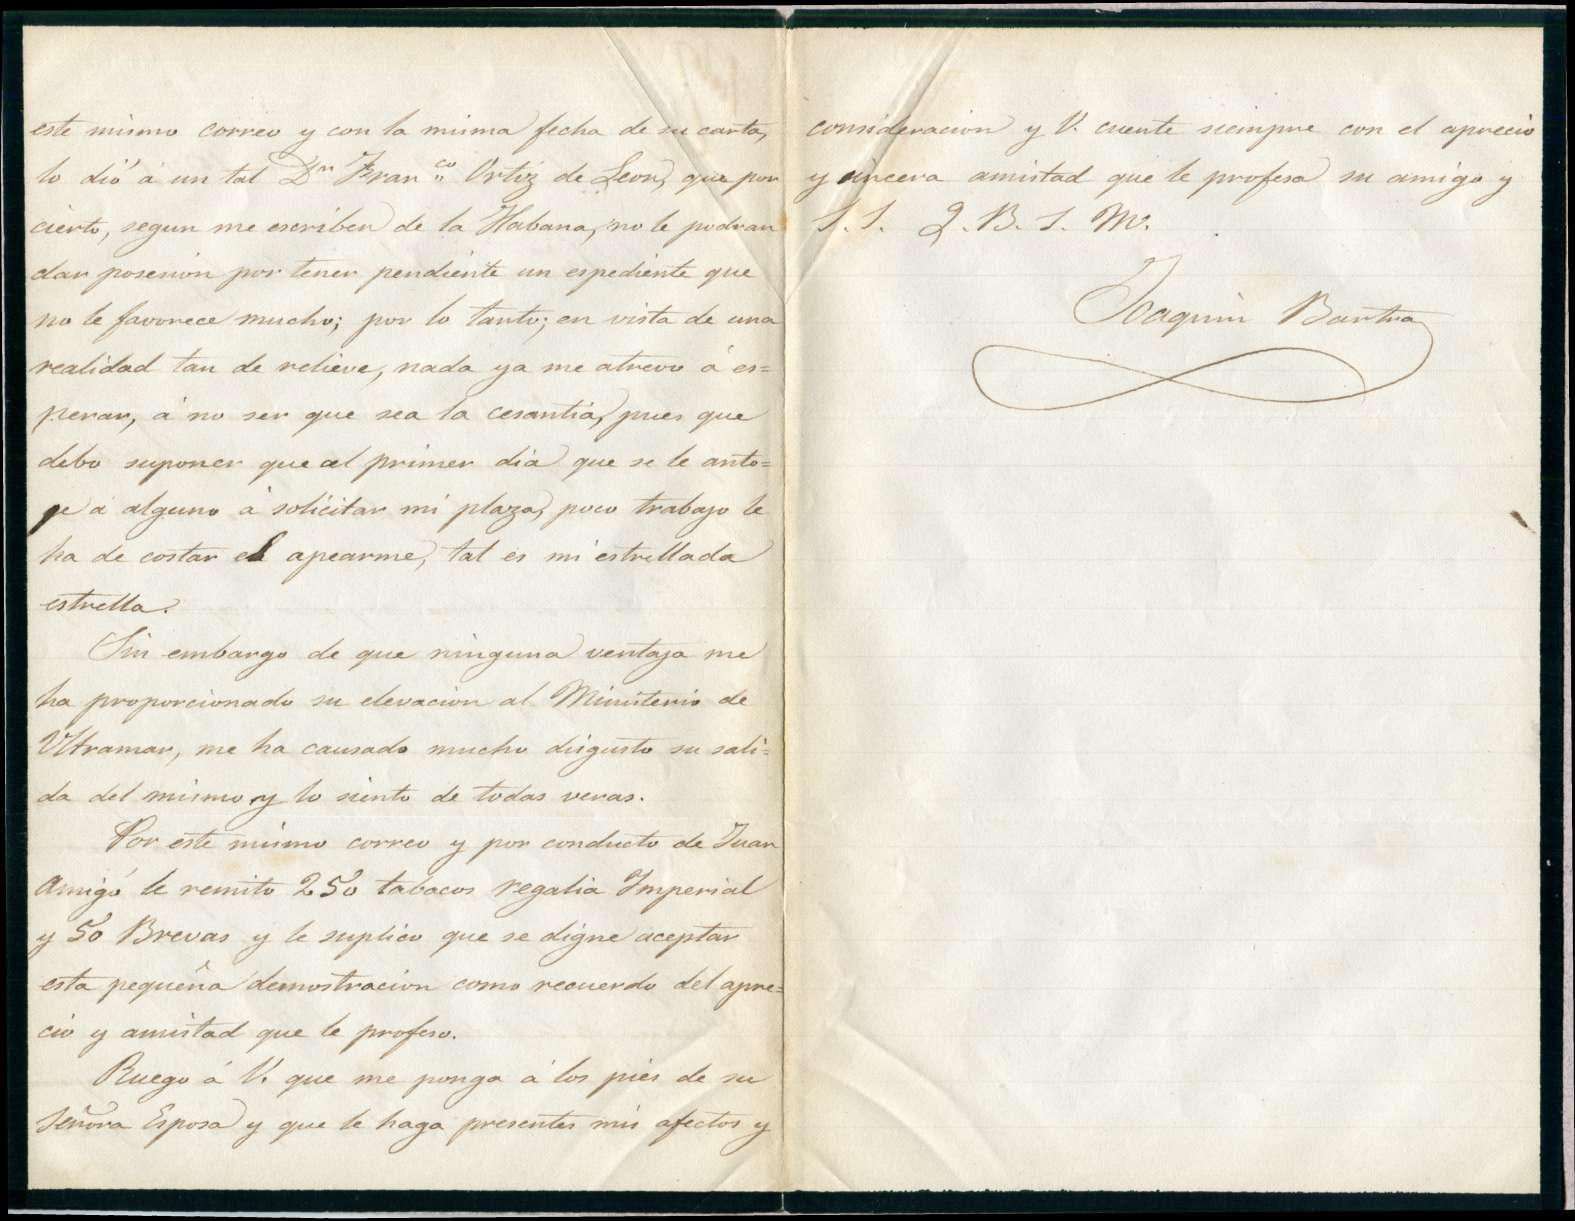 este mismo correo y con la misma fecha de su carta,
lo dió á un tal Dn Franco Ortiz de Leon, que por
cierto, segun me escriben de la Habana, no le podran
dar posesion por tener pendiente un espediente que
no le favorece mucho; por lo tanto; en vista de una
realidad tan de relieve, nada ya me atrevo á es=
perar, á no ser que sea la cesantia, pues que
debo suponer que el primer dia que se le anto=
je á alguno á solicitar mi plaza, poco trabajo le
ha de costar el apearme, tal es mi estrellada
estrella.
Sin embargo de que ninguna ventaja me
ha proporcionado su elevacion al Ministerio de
Ultramar, me ha causado mucho disgusto su sali=
da del mismo y lo siento de todas veras.
Por este mismo correo y por conducto de Juan
Amigó le remito 250 tabacos regalia Imperial
y 50 Brevas y le suplico que se digne aceptar
esta pequeña demostracion como recuerdo del apre=
cio y amistad que le profeso.
Ruego á V. que me ponga á los piés de su
Señora Esposa y que le haga presentes mis afectos y
consideracion y V. cuente siempre con el aprecio
y sincera amistad que le profesa su amigo y
S. S. Q. B. S. M.
Joaquin Bartra